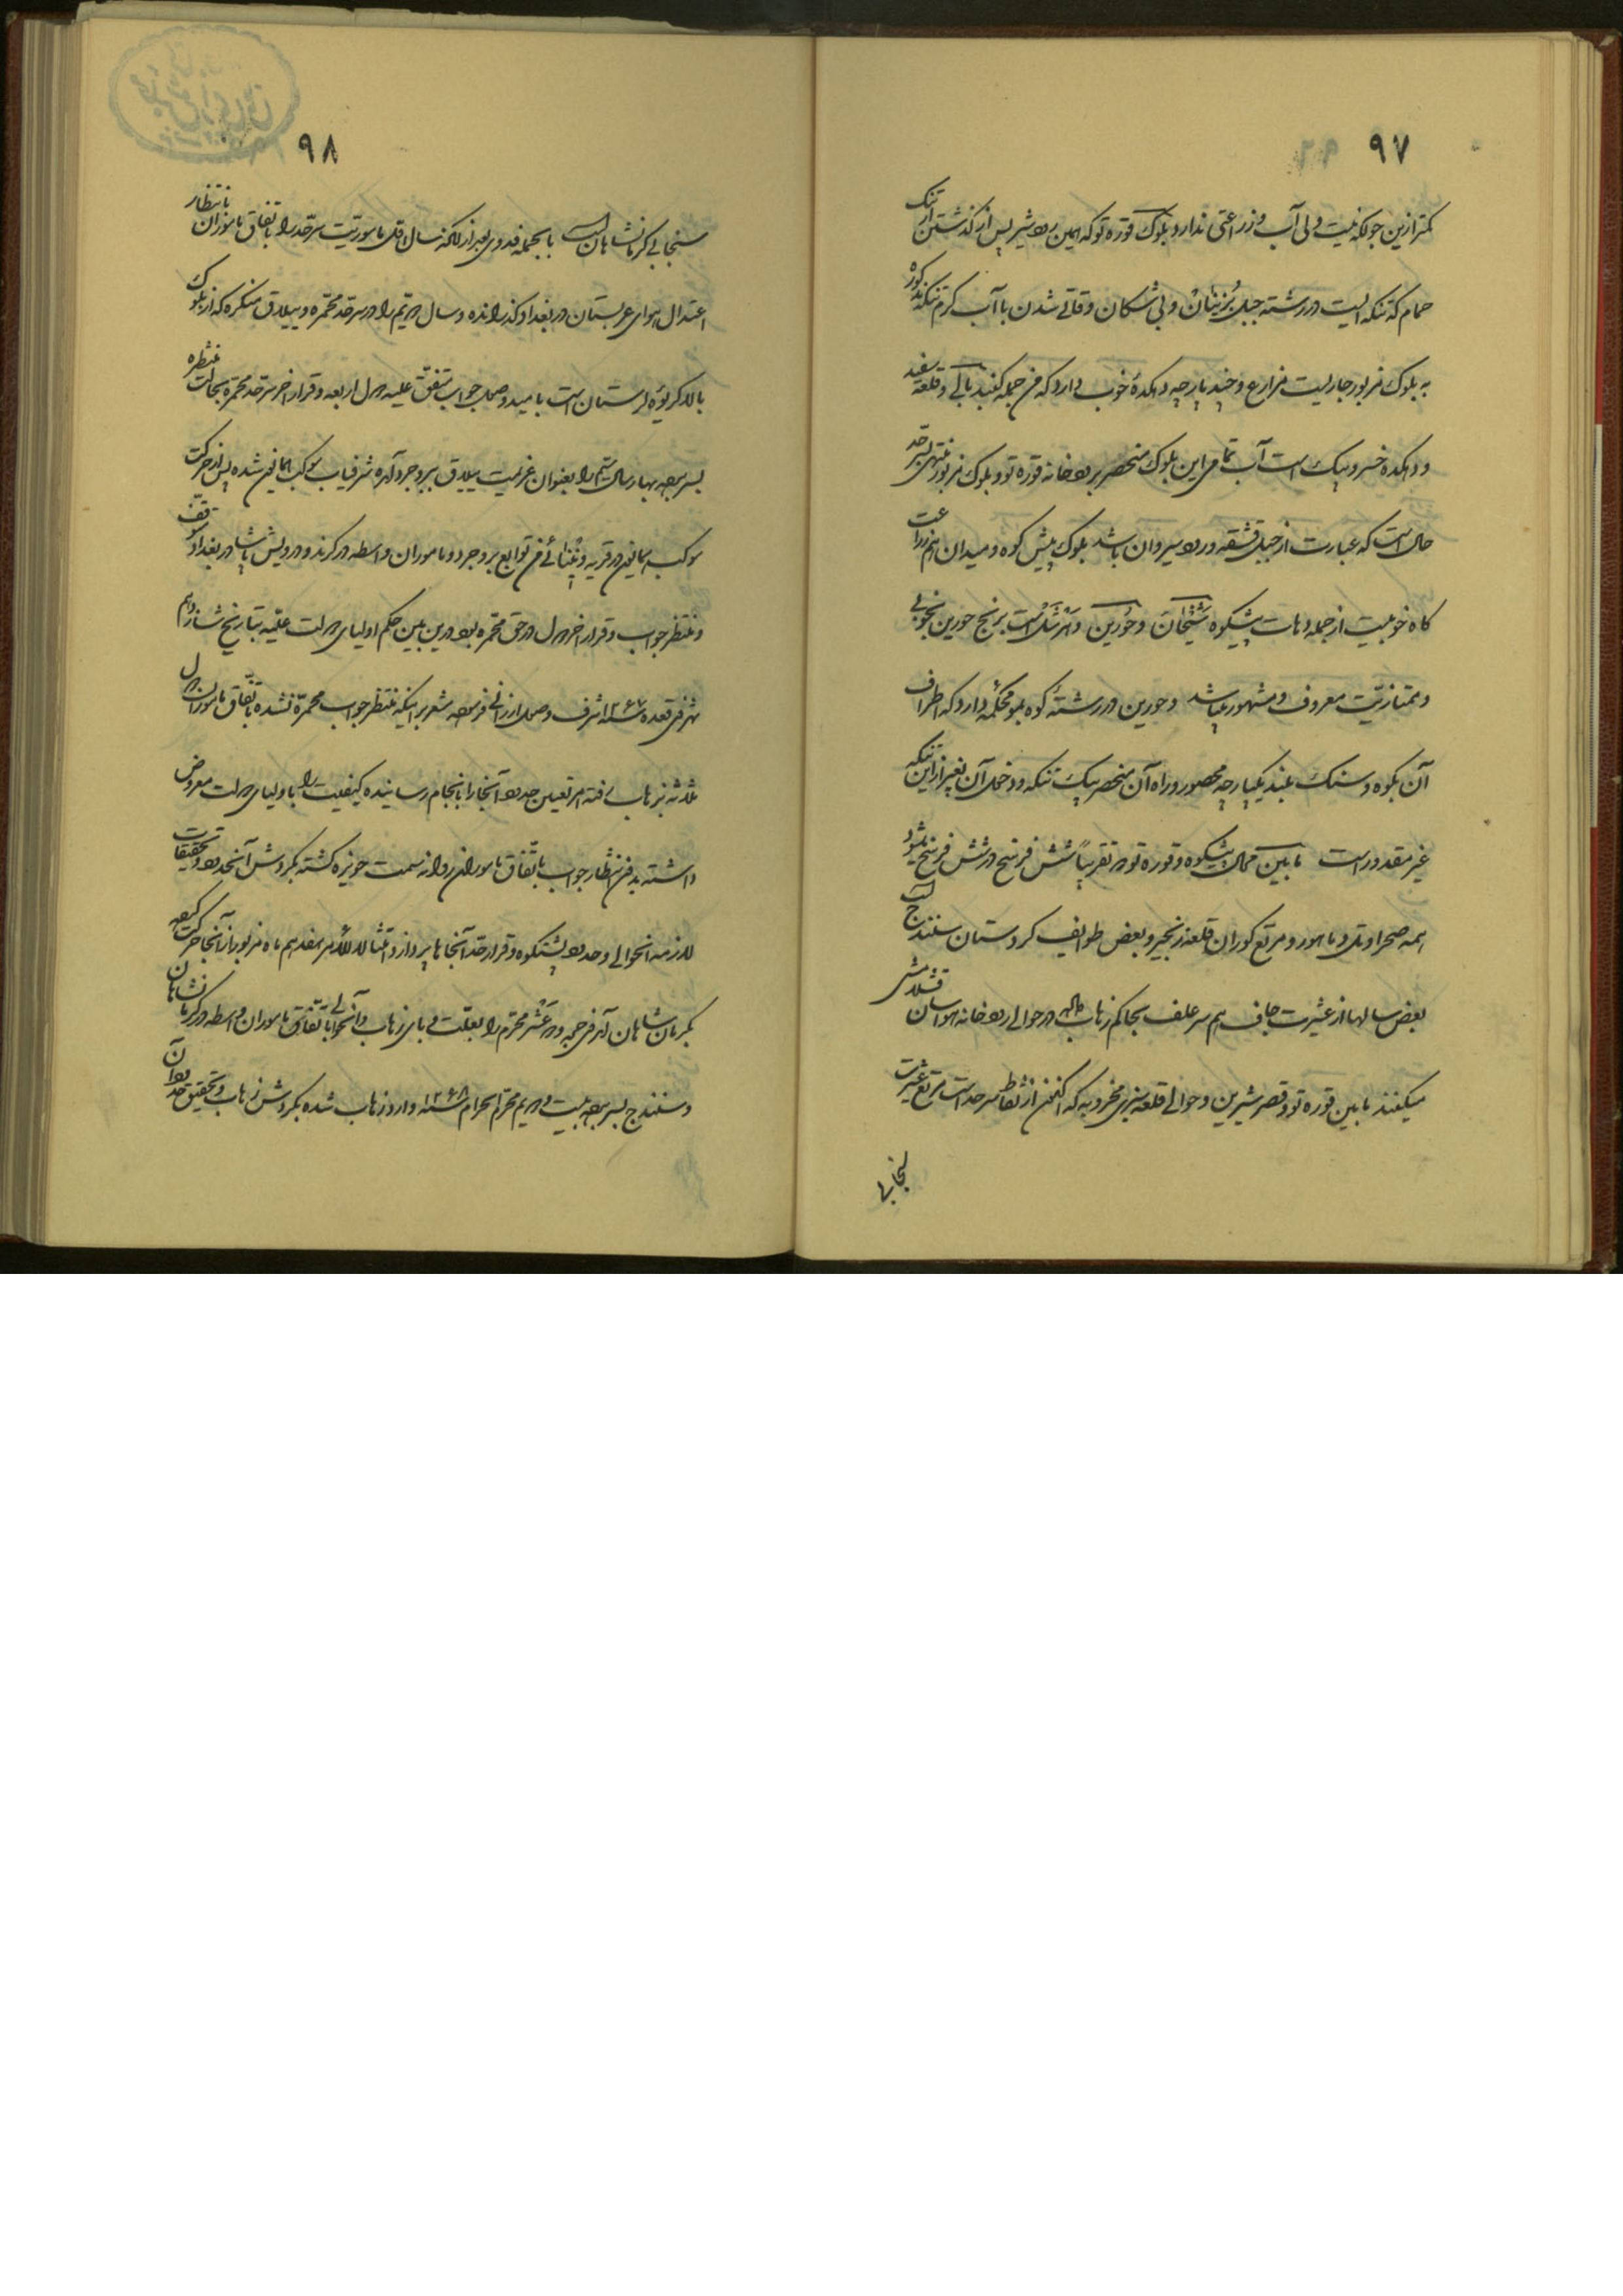 ۹۷
کمتر ازین جولکه نیست ولی آب و زراعتی ندارد و بلوک قوره تو که همین رود شیر پس از گذشتن از تنک
حمام که تنکه ایست در رشته جبل بزنیان و بی شکان و قاتی شدن با آب گرم تنکه مذکوره
به بلوک مزبور جاریست مزارع و چند پارچه دهکدهٔ خوب دارد که من جمله کنبد بالی و قلعه سفید
و دهکده خسرو بیک است آب تمامی این بلوک منحصر برودخانه قوره تو و بلوک مزبور منتهی بسرحد
حال است که عبارت از جبل قشقه و رود سیروان باشد بلوک پیش کوه و میدان هم زراعت
کاه خوبیست از جمله دهات پیشکوه شیخان و حورین و است برنج حورین بخوبی
و ممتازیت معروف و مشهور میباشد و حورین در رشتهٔ کوه بمو محکمهٔ دارد که اطراف
آن بکوه و سنک بلند یکپارچه محصور و راه آن منحصر بیک تنکه و دخول آن بغیر از این تنکه
غیر مقدور است مابین محال پیشکوه و قوره تو که تقریباً شش فرسخ در شش فرسخ میشود
همه صحرا و تل و ماهور و مرتع کوران قلعه زنجیر و بعض طوایف کردستان سنندج است
بعض سالها از عشیرت جاف هم سر علف بحاکم زهاب داده در حوالی رودخانه هواسان قشلامشی
میکنند مابین قوره تو و قصر شیرین و حوالی قلعه سبزی مخروبه که اکنون از نقاط سرحد است مرتع عشیرت
سنجابی
۹۸
سنجابی کرمانشاهان است بالجمله فدوی بعد از آنکه سال اول ماموریت سرحد را باتفاق ماموران بانتظار
اعتدال هوای عربستان در بغداد گذرانده و سال دویم را در سرحد محمره و ییلاق منکره که از بلوک
بالا کریوه لرستان است بامید وصول جواب متفق علیه دول اربعه و قرار آخر سرحد محمره بحالت منتظره
بسر برده بهار سال سیم را بعنوان عزیمت ییلاق ببروجرد آمده شرفیاب موکب همایون شده پس از حرکت
موکب همایون در قریه ونائی من توابع بروجرد و ماموران واسطه در کرند و درویش پاشا در بغداد توقف
و منتظر جواب و قرار آخر دول در حق محمره بود درین بین حکم اولیای دولت علیه بتاریخ شانزدهم
شهر ذی قعده سنه ۱۲۶۷ شرف وصول ارزانی فرموده مشعر بر اینکه منتظر جواب محمره نشده باتفاق ماموران دول
ثلاثه بزهاب رفته امر تعیین حدود آنجا را بانجام رسانیده کیفیت را باولیای دولت معروض
داشته بدون انتظار جواب باتفاق ماموران روانه سمت حویزه کشته بگردش آنحدود و تحقیقات
لازمه آنحوالی و حدود پشتکوه و قرار حد آنجاها پردازد امتثالا للأمر هفدهم ماه مزبور از آنجا حرکت کرده
بکرمانشاهان آمد ذی حجه و عشر محرم را بعلت وبای زهاب و آنحوالی باتفاق ماموران واسطه در کرمانشاهان
و سنندج بسر برده بیست و دویم محرم الحرام سنه ۱۲۶۸ وارد زهاب شده بگردش زهاب و تحقیق حدود آن